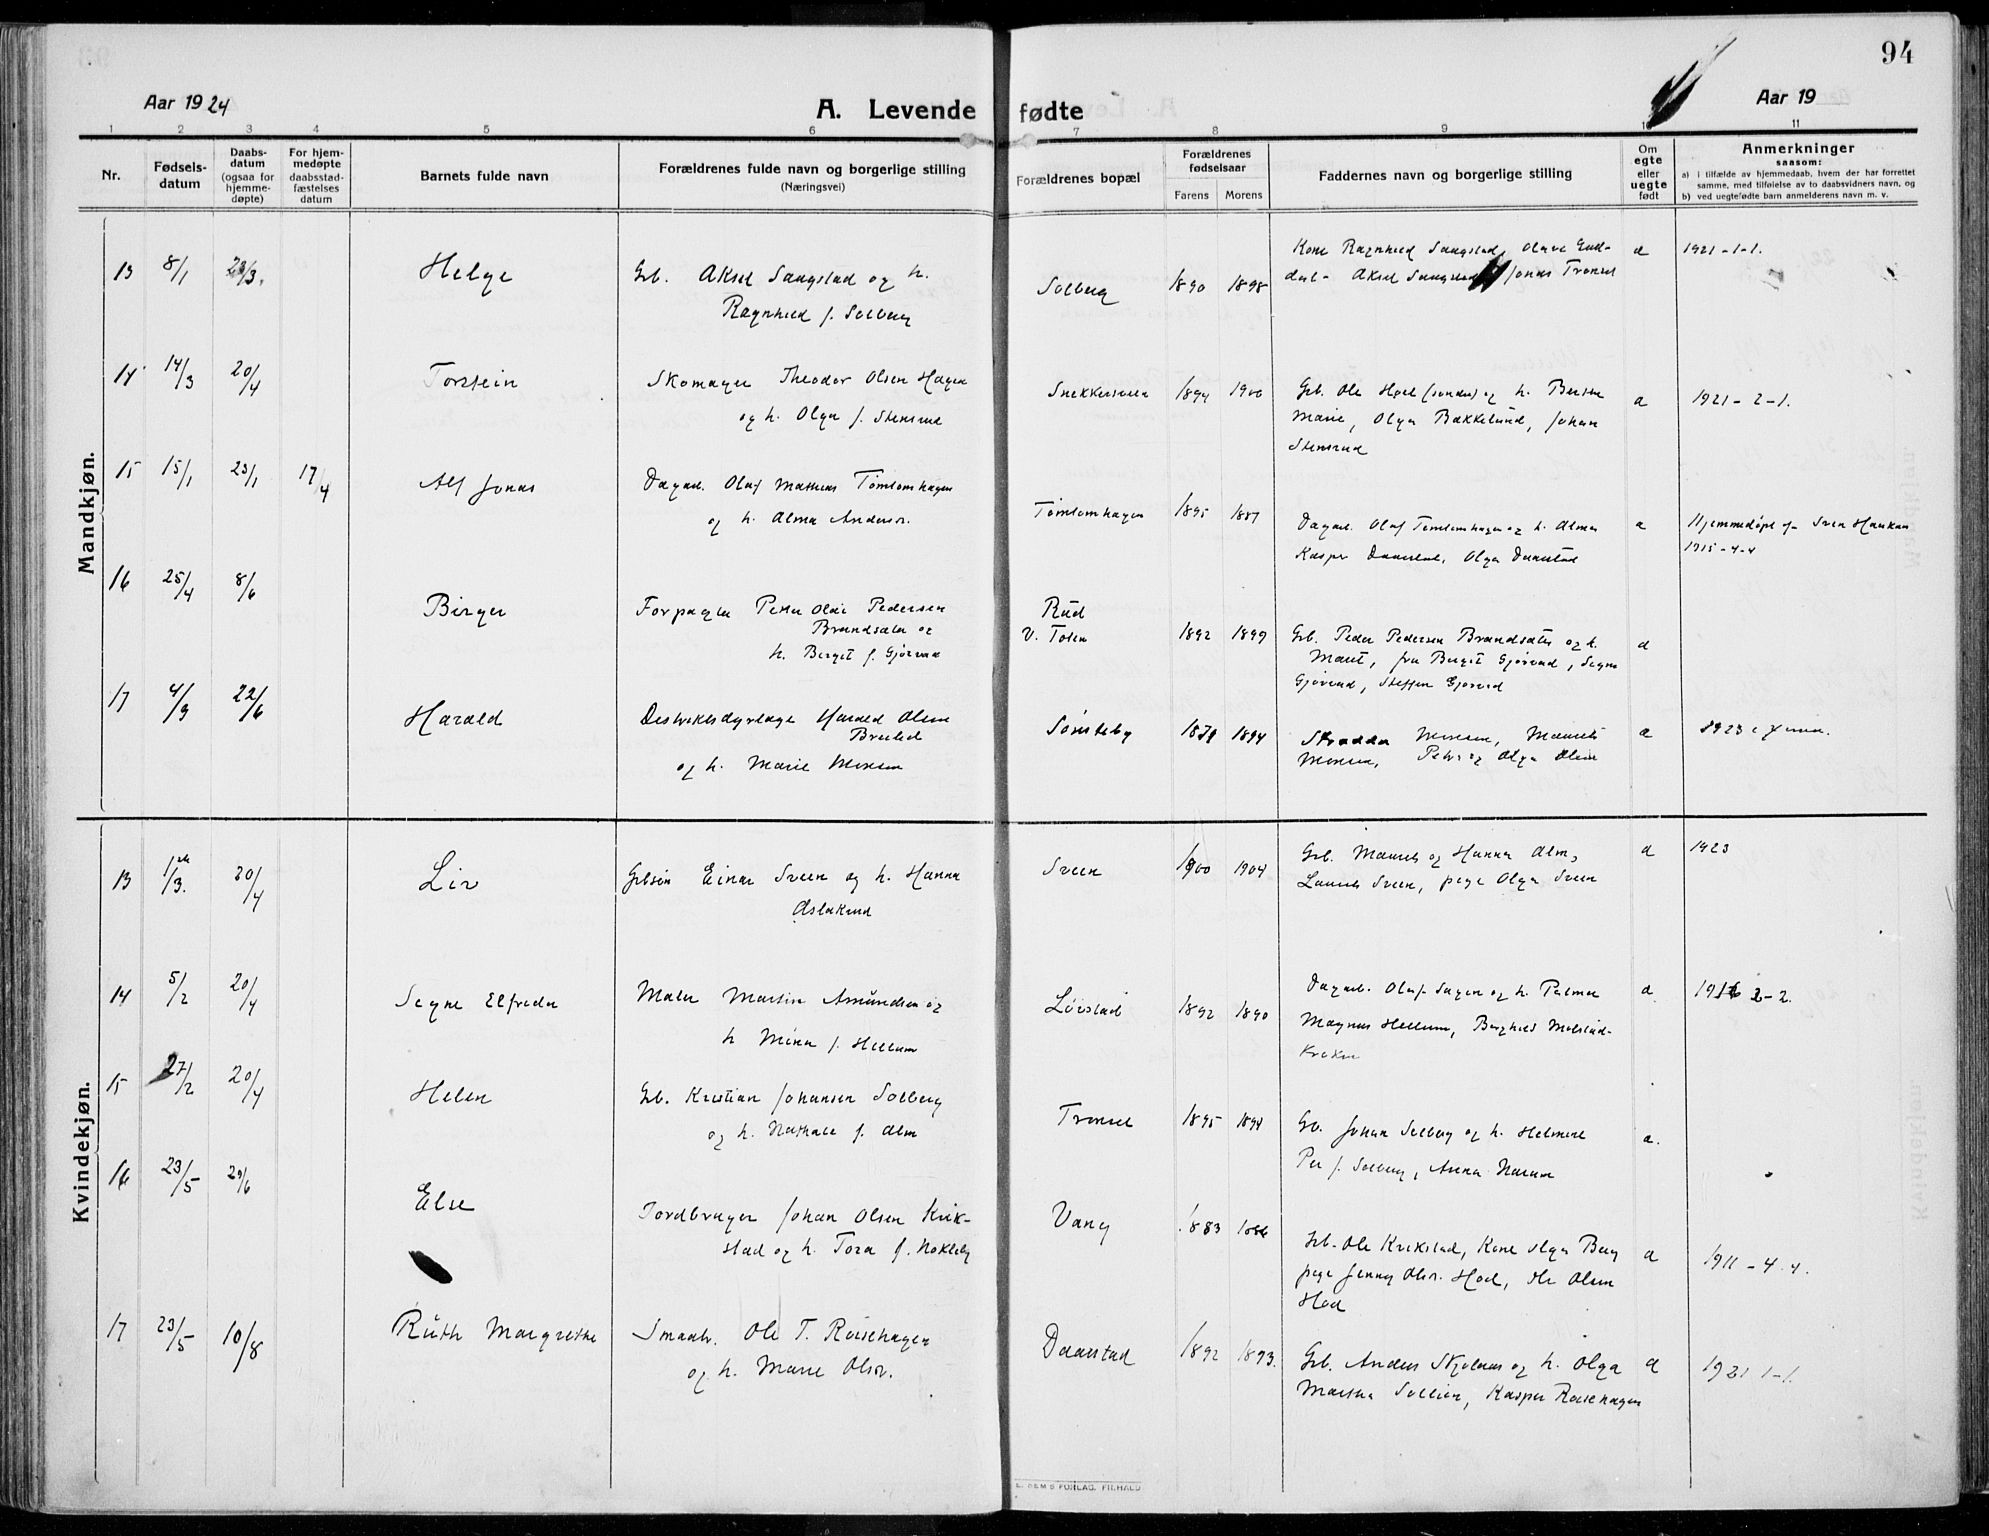 94
Aar 1924
A. Levende fødte
Aar 19
1 2 3 4 5 6 7 8 9 10 11
Nr.
Fødsels-
datum
Daabs-
datum
(ogsaa for
hjemme-
døpte)
For hjem-
medøpte
daabsstad-
fæstelses
datum
Barnets fulde navn
Forældrenes fulde navn og borgerlige stilling
(Næringsvei)
Forældrenes bopæl
Forældrenes
fødselsaar
Farens Morens
Faddernes navn og borgerlige stilling
Om
egte
eller
uegte
født
Anmerkninger
saasom:
a) i tilfælde av hjemmedaab, hvem der har forrettet
samme, med tilføielse av to daabsvidners navn, og
b) ved uegtefødte barn anmelderens navn m. v.
Mandkjøn.
13 8/1 23/3. Helge
Grb. Aksel Saugstad og h.
Ragnhild f. Solberg
Solberg 1890 1898
Kone Ragnhild Saugstad, Olava
Aksel Saugstad Jonas Tronsel
a 1921-1-1.
14 14/3 20/4 Torstein
Skomager Theodor Olsen Hagen
og h. Olga f. Stensrud
1894 1900
Grb. Ole Hoel (søndre) og h. Berthe
Marie, Olga Bakkelund, Johan
Stensrud
a 1921-2-1.
15 15/1 23/1 17/4 Alf Jonas
Dagarb. Olaf Mathias Tømtomhagen
og h. Alma Andersr.
Tømtomhagen 1895 1887
Dagarb. Olaf Tømtomhagen og h. Alma
Kasper Daarstad, Olga Daarstad
a Hjemmedøpt af Sven Haukan
1915-4-4
16 25/4 8/6 Birger
Forpagter Petter Olai Pedersen
Brandsæter og
h. Berget f. Gjørvad
Rud
V. Toten 1892 1899
Grb. Peder Pedersen Brandsæter og h.
Marit, fru Berget Gjørvad, Signe
Gjørvad, Steffen Gjørvad
a
17 4/3 22/6 Harald
Destriktsdyrlæge Harald Olsen
og h. Marie Monsen
Sønsteby 1879 1894
Skrædder Monsen, Maurits
Monsen, Petra og Olga Olsen
a 1923
Kvindekjøn.
13 1/3. 20/4 Liv
Grbsøn Einar Sveen og h. Hanna
Aslaksrud
Sveen 1900 1904
Grb. Maurits og Hanna Alm,
Laurits Sveen, pige Olga Sveen
a 1923
14 5/2 20/4 Signe Elfrida
Maler Martin Amundsen og
h Mina f. Hellum
Løvstad 1892 1890
Dagarb. Olaf Sagen og h. Palma
Magnus Hellum, Borghild Molstad-
a
15 27/2 20/4 Helen
Grb. Kristian Johansen Solberg
og h. Nathalie f. Alm
Tronsel 1895 1894
Grb. Johan Solberg og h. Helmine
Per f. Solberg, Anna Narum
a.
16 23/5 29/6 Else
Jordbruger Johan Olsen Krik-
stad og h. Tora f. Nøkleby
Vang 1883 1886
Grb. Ole Krikstad, Kone Olga Berg
pige Jenny Olsr. Hoel, Ole Olsen
Hoel
a 1911-4 4.
17 23/5 10/8 Ruth Margrethe
Smaabr. Ole T. Roisehagen
og h. Marie Olsr.
Daarstad 1892 1893.
Grb. Anders Skjelnes og h. Olga
Martha Sollien, Kasper Roisehagen
a 1921 1-1.